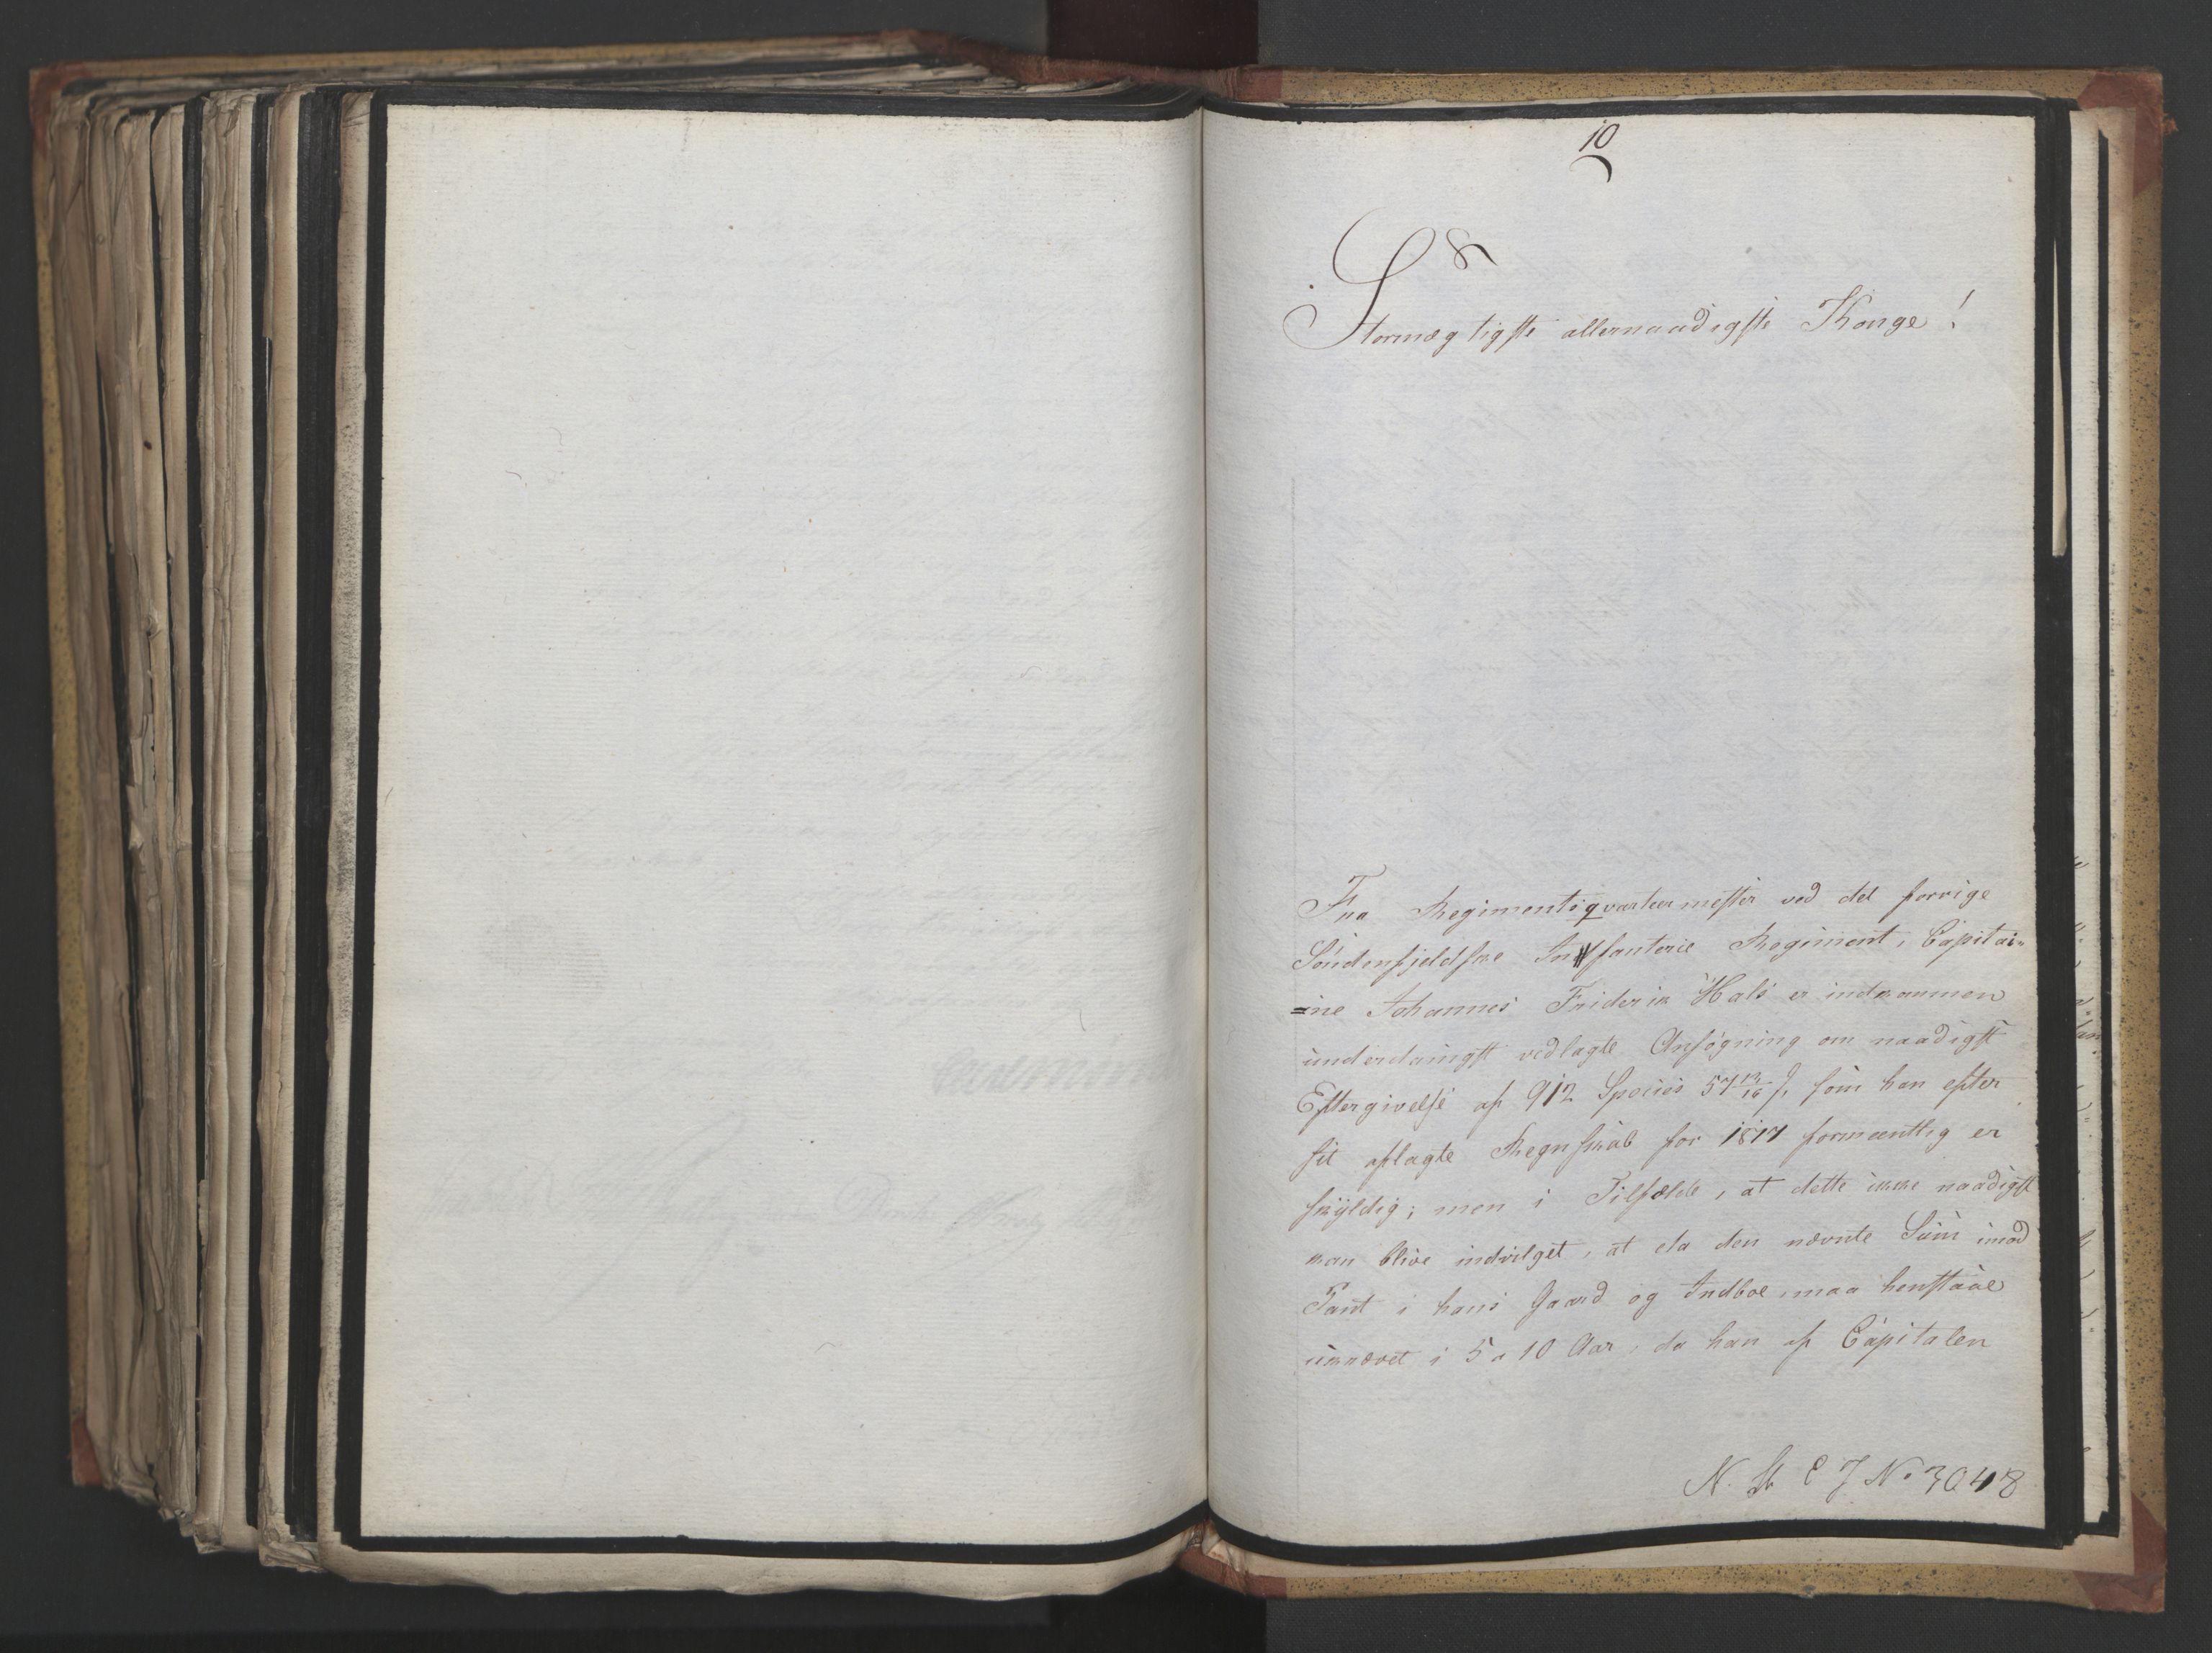 10
Stormægtigste allernaadigste Konge!
Fra Regimentsqvarteermester ved det forrige
Söndenfjeldske Infanterie Regiment, Capitai-
=ine Johannes Friderik Hals er indkommen
underdanigst vedlagte Ansøgning om naadigst
Eftergivelse af 912 Species 57 13/16 s, som han efter
sit aflagte Regnskab for 1817 formeentlig er
skyldig; men i Tilfælde, at dette ikke naadigst
kan blive indvilget, at da den nævnte Sum imod
Pant i hans Gaard og Indboe maa henstaae
ukrævet i 5 a 10 Aar, da han af Capitalen
N. St E J No 3048